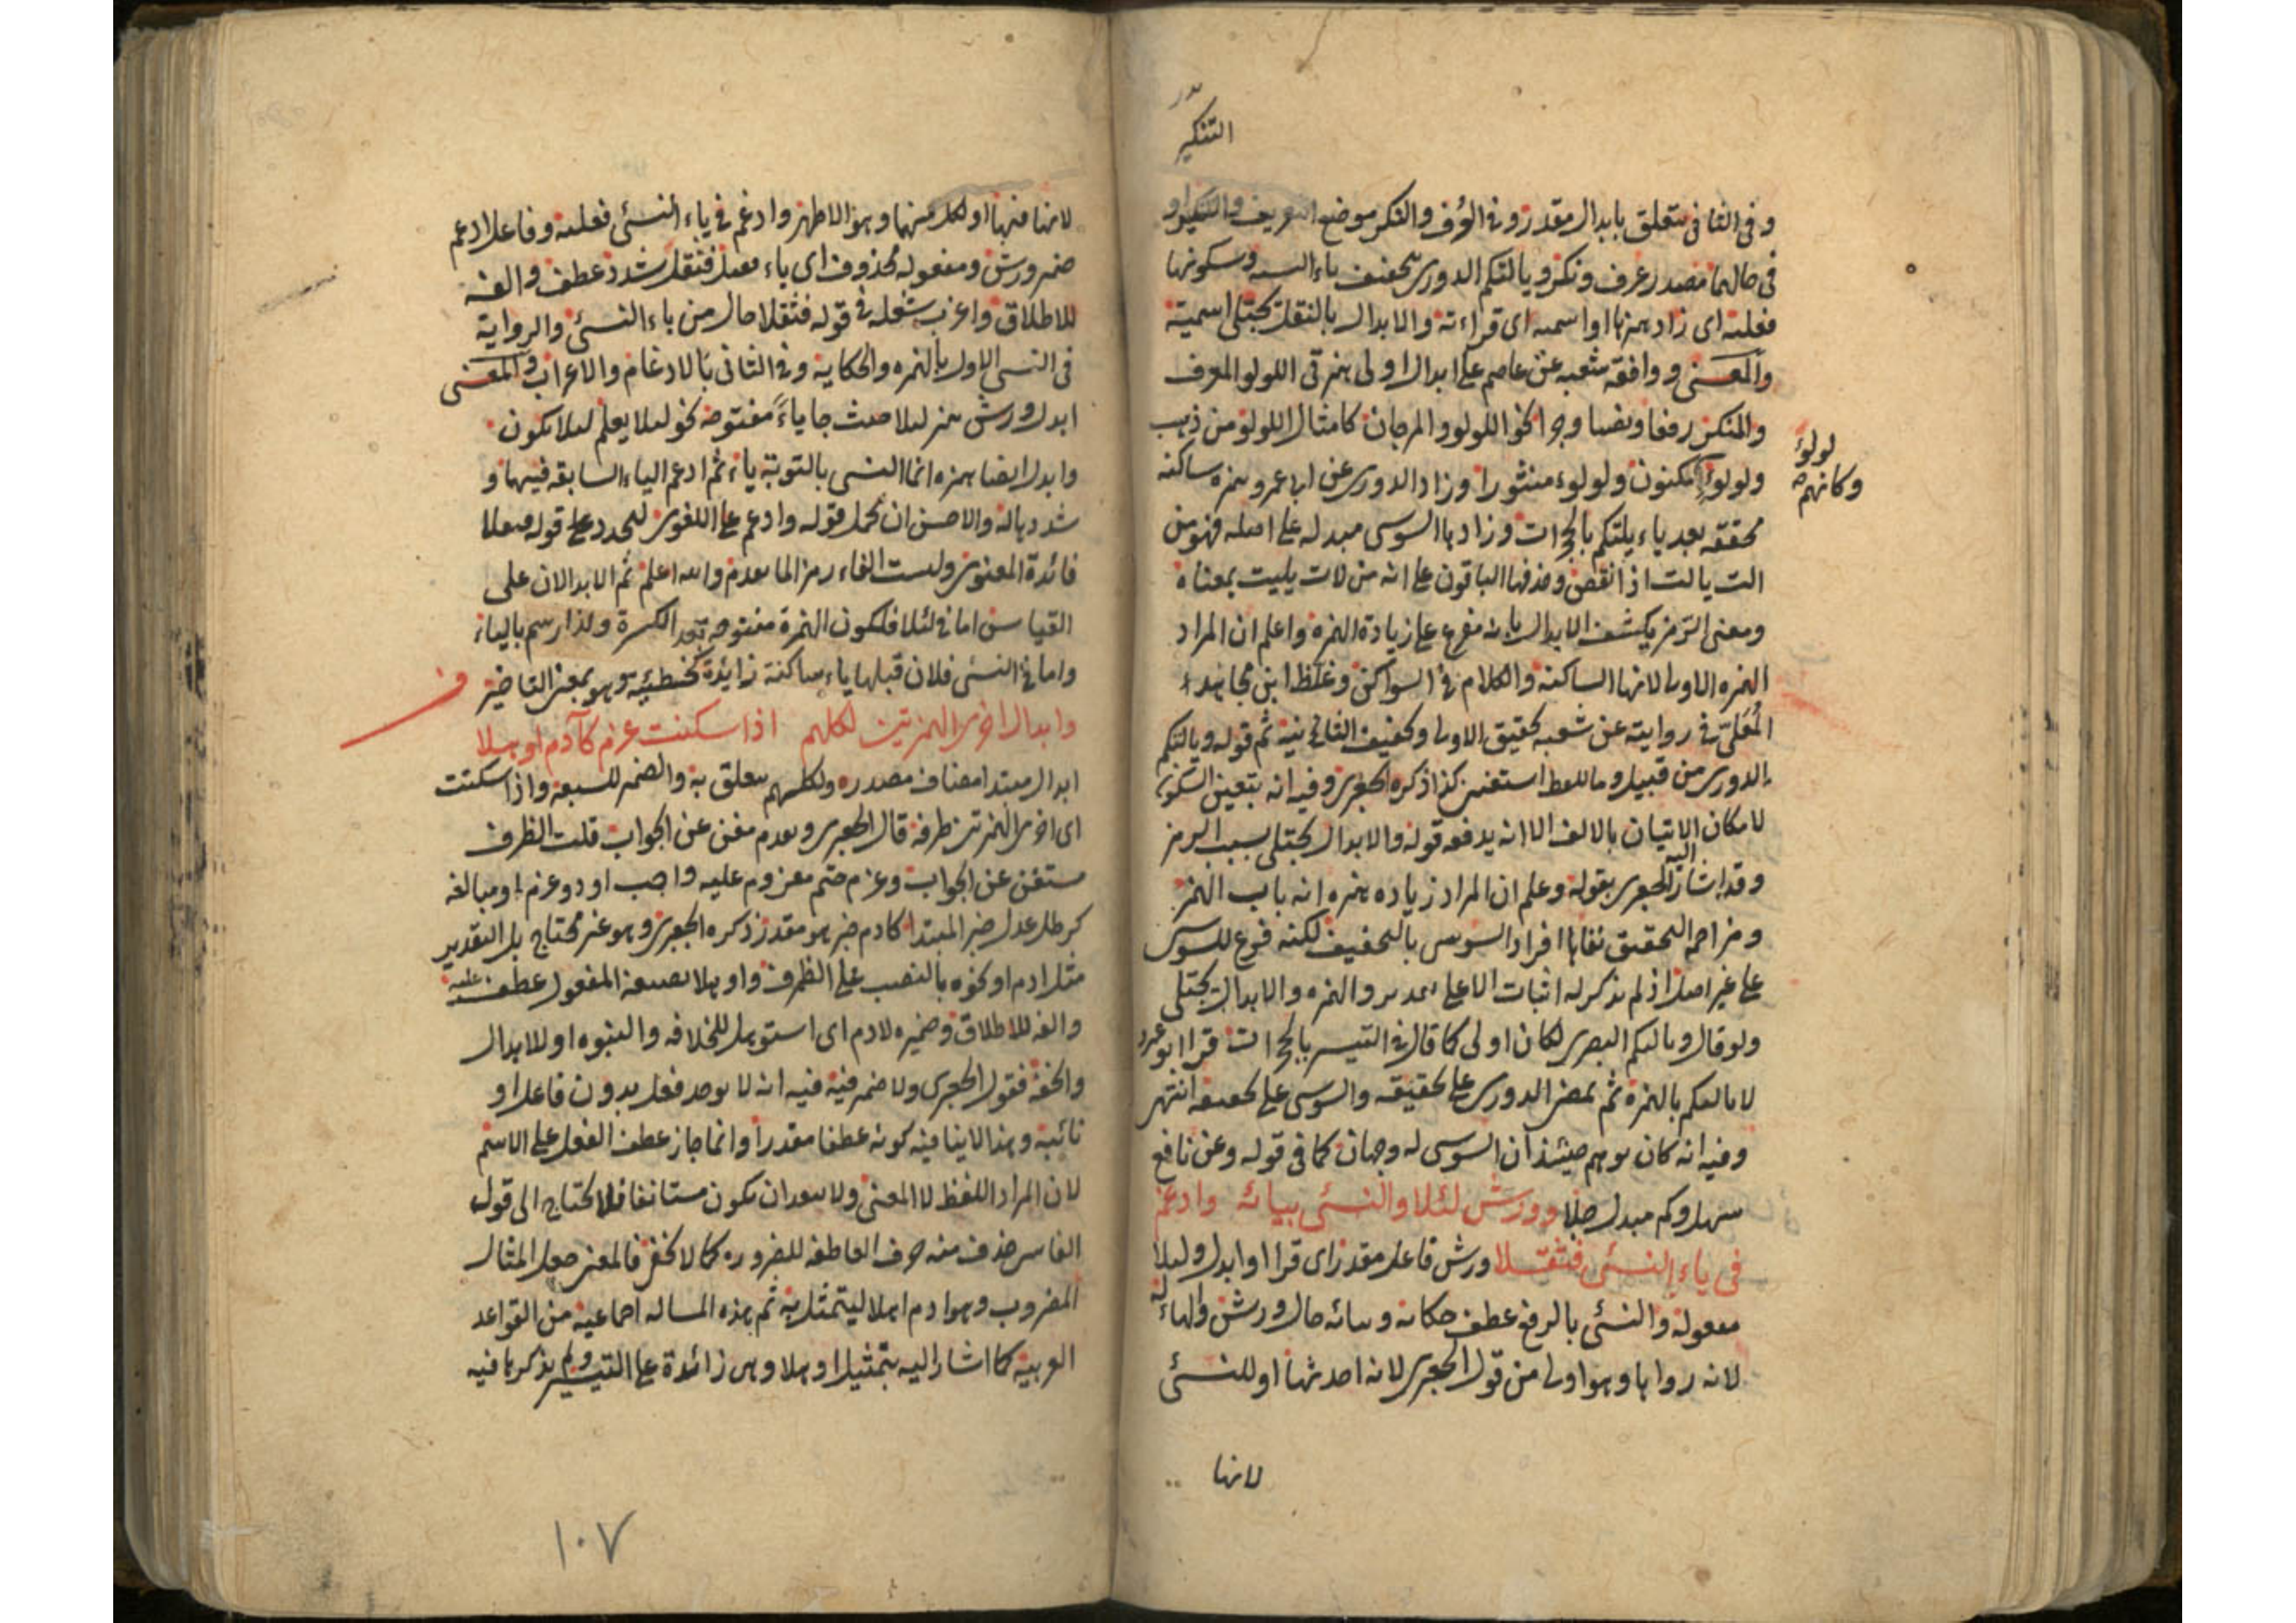 التنكير
وفى الثانى يتعلق بابدال مقدر وفى العرف والنكر موضع التعريف والتنكير او
فى حالهما مصدر عرف ونكر ويالتكم الدورى بتخفيف ياء النسبة وسكونها
فعلية اى زاد همزها او اسمية اى قراءته والابدال بالنقل يجتلى اسمية
والمعنى ووافقه شعبه عن عاصم على ابدال اولى همزتى اللولو المعرف
والمنكر رفعا ونصبا وجرا نحو اللولو والمرجان كامثال اللولو من ذهب
ولولوا
لولوؤ
وكانهم
مكنون ولولوء منثورا وزاد الدورى عن ابى عمرو همزه ساكنه
محققه بعد ياء يلتكم بالحجرات وزادها السوسى مبدله على اصله فهو من
الت يالت اذا نقص وحذفها الباقون على انه من لات يليت بمعناه
ومعنى الرمز يكشف الابدال بانه مفرع على زيادة الهمزه واعلم ان المراد
الهمزه الاولى لانها الساكنه والكلام فى السواكن وغلظ ابن مجاهد
المعلى فى روايته عن شعبه تحقيق الاولى وتخفيف الثانية ثم قوله ويالتكم
الدورى من قبيل وما للفظ استغنى كذا ذكره الجعبرى وفيه انه يتعين السكون
لامكان الاتيان بالالف الا انه يدفعه قوله والابدال يجتلى بسبب الرمز
وقد اشار اليه الجعبرى بقوله وعلم ان المراد زياده همزه انه باب الهمز
ومزاحمه التحقيق نفاها افراد السوسى بالتخفيف لكنه فرع للسوسى
على غير اصل اذ لم يذكر له اثبات الا على والهمزه والابدال يجتلى
ولو قال ويالتكم البصرى لكان اولى كما قال فى التيسير بالحجرات قرا ابو عمرو
لا يالتكم بالهمزه ثم يمضى الدورى على تحقيقه والسوسى على تخفيفه انتهى
وفيه انه كان يوهم حينئذ ان السوسى له وجهان كما فى قوله وعن نافع
سهل وكم مبدل جلا وورش لئلا والنسئ بيائه وادغم
فى ياء النسئ فثقلا ورش فاعل مقدر اى قرا او ابدل ولئلا
مفعوله والنسئ بالرفع عطف حكاية وبيائه حال ورش والهاء له
لانه رواها وهو اولى من قول الجعبرى لانه احدثها او للنسئ
لانها
لانها منها او لكل منهما وهو الاظهر وادغم فى ياء النسئ فعلية وفاعل ادغم
ضمير ورش ومفعوله محذوف اى ياء فثقل شدد عطف والفه
للاطلاق واعرب شعله فى قوله فثقلا حال من ياء النسئ والرواية
فى النسئ الاول بالهمزه والحكاية وفى الثانى بالادغام والاعراب والمعنى
ابدل ورش همز لئلا حيث جا ياء مفتوحه نحو لئلا يعلم لئلا يكون
وابدل ايضا همزه انما النسئ بالتوبة ياء ثم ادغم الياء السابقه فيها و
شدد ياله والاحسن ان يحمل قوله وادغم على اللغوى ليحدد على قوله فثقلا
فائدة المعنوى وليست الفاء رمزا لما تقدم والله اعلم ثم الابدالان على
القياس اما فى لئلا فلكون الهمزة مفتوحه بعد الكسرة ولذا رسم بالياء
واما فى النسئ فلان قبلها ياء ساكنة زائدة كخطيئة وهو بمعنى التاخير
وابدال اخرى الهمزتين لكلهم اذا سكنت عزم كآدم اوهلا
ابدال مبتدا مضاف مصدره ولكلهم يتعلق به والضمير للسبعه واذا سكنت
اى اخرى الهمزتين ظرفه قال الجعبرى وتقدم مغن عن الجواب قلت الظرف
مستغن عن الجواب وعزم حتم معزوم عليه واجب او ذو عزم او مبالغه
كرجل عدل خبر المبتدا كادم خبر هو مقدر ذكره الجعبرى وهو غير محتاج بل التقدير
مثل ادم او نحوه بالنصب على الظرف واوهلا بصيغة المفعول عطف عليه
والفه للاطلاق وضميره لادم اى استوهل للخلافه والنبوه او للابدال
والخفة فقول الجعبرى ولا ضمير فيه فيه انه لا يوجد فعل بدون فاعل او
نائبه وهذا لا ينافيه كونه عطفا مقدرا وانما جاز عطف الفعل على الاسم
لان المراد اللفظ لا المعنى ولا يبعد ان يكون مستانفا فلا يحتاج الى قول
الفاسى حذف منه حرف العاطفه للضروره كما لا يخفى فالمعنى جعل المثال
المضروب وهو ادم اهلا ليتمثل به ثم هذه المساله اجماعيه من القواعد
العربيه كما اشار اليه بتمثيل اوهلا وهى زائدة على التيسير ولم يذكرها فيه
١٠٧